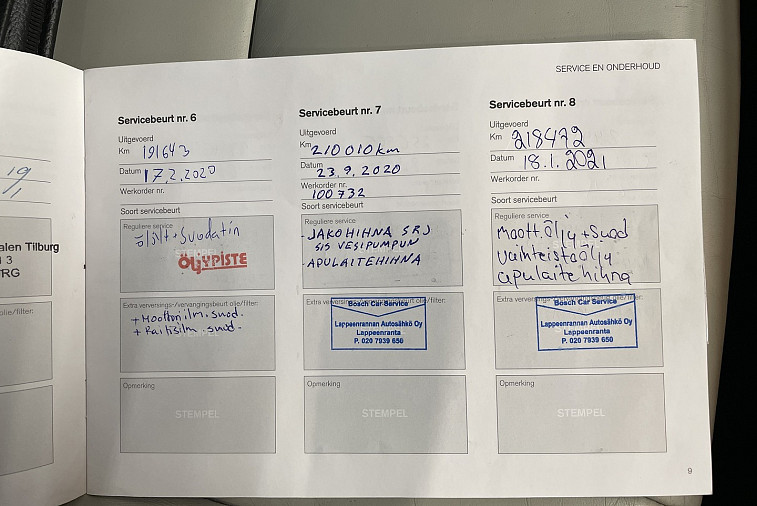 SERVICE EN ONDERHOUD
19/1
alen Tilburg
3
RG
olie/filter:
Servicebeurt nr. 6
Uitgevoerd
Km 191643
Datum 17.2.2020
Werkorder nr.
Soort servicebeurt
Reguliere service
öljyt + suodatin
ÖLJYPISTE
Extra verversings-/vervangingsbeurt olie/filter:
+ Moottorilm.suod.
+ Raitisilm.suod.
Opmerking
STEMPEL
Servicebeurt nr. 7
Uitgevoerd
Km 210010km
Datum 23.9.2020
Werkorder nr. 100732
Soort servicebeurt
Reguliere service
- JAKOHIHNA SRJ
SIS VESIPUMPUN
- APULAITEHIHNA
Bosch Car Service
Lappeenrannan Autosähkö Oy
Lappeenranta
P. 020 7939 650
Opmerking
STEMPEL
Servicebeurt nr. 8
Uitgevoerd
Km 218472
Datum 18.1.2021
Werkorder nr.
Soort servicebeurt
Reguliere service
Moott.Öljy + Suod
Vaihteistoöljy
apulaitehihna
Bosch Car Service
Lappeenrannan Autosähkö Oy
Lappeenranta
P. 020 7939 650
Opmerking
STEMPEL
9